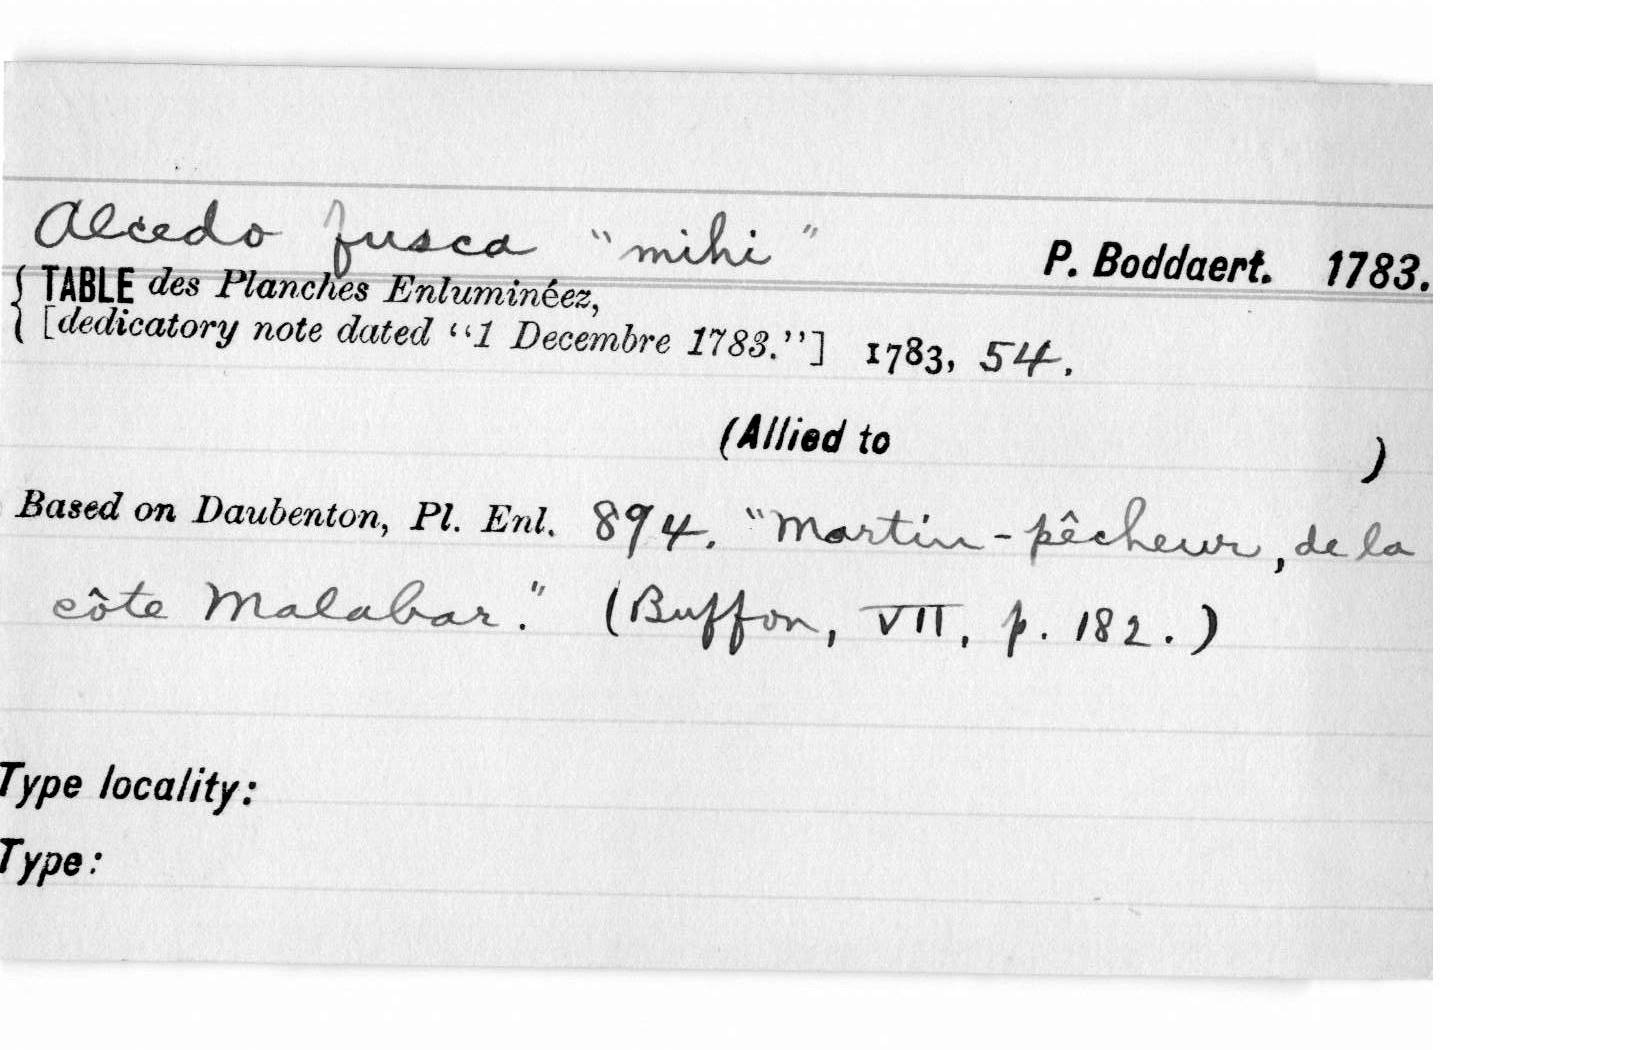 Alcedo fusca "mihi" P. Boddaert. 1783.
TABLE des Planches Enluminéez,
[dedicatory note dated "1 Decembre 1783."] 1783, 54.
(Allied to )
Based on Daubenton, Pl. Enl. 894. "Martin-pêcheur, de la
côte Malabar." (Buffon, VII, p. 182.)
Type locality:
Type: